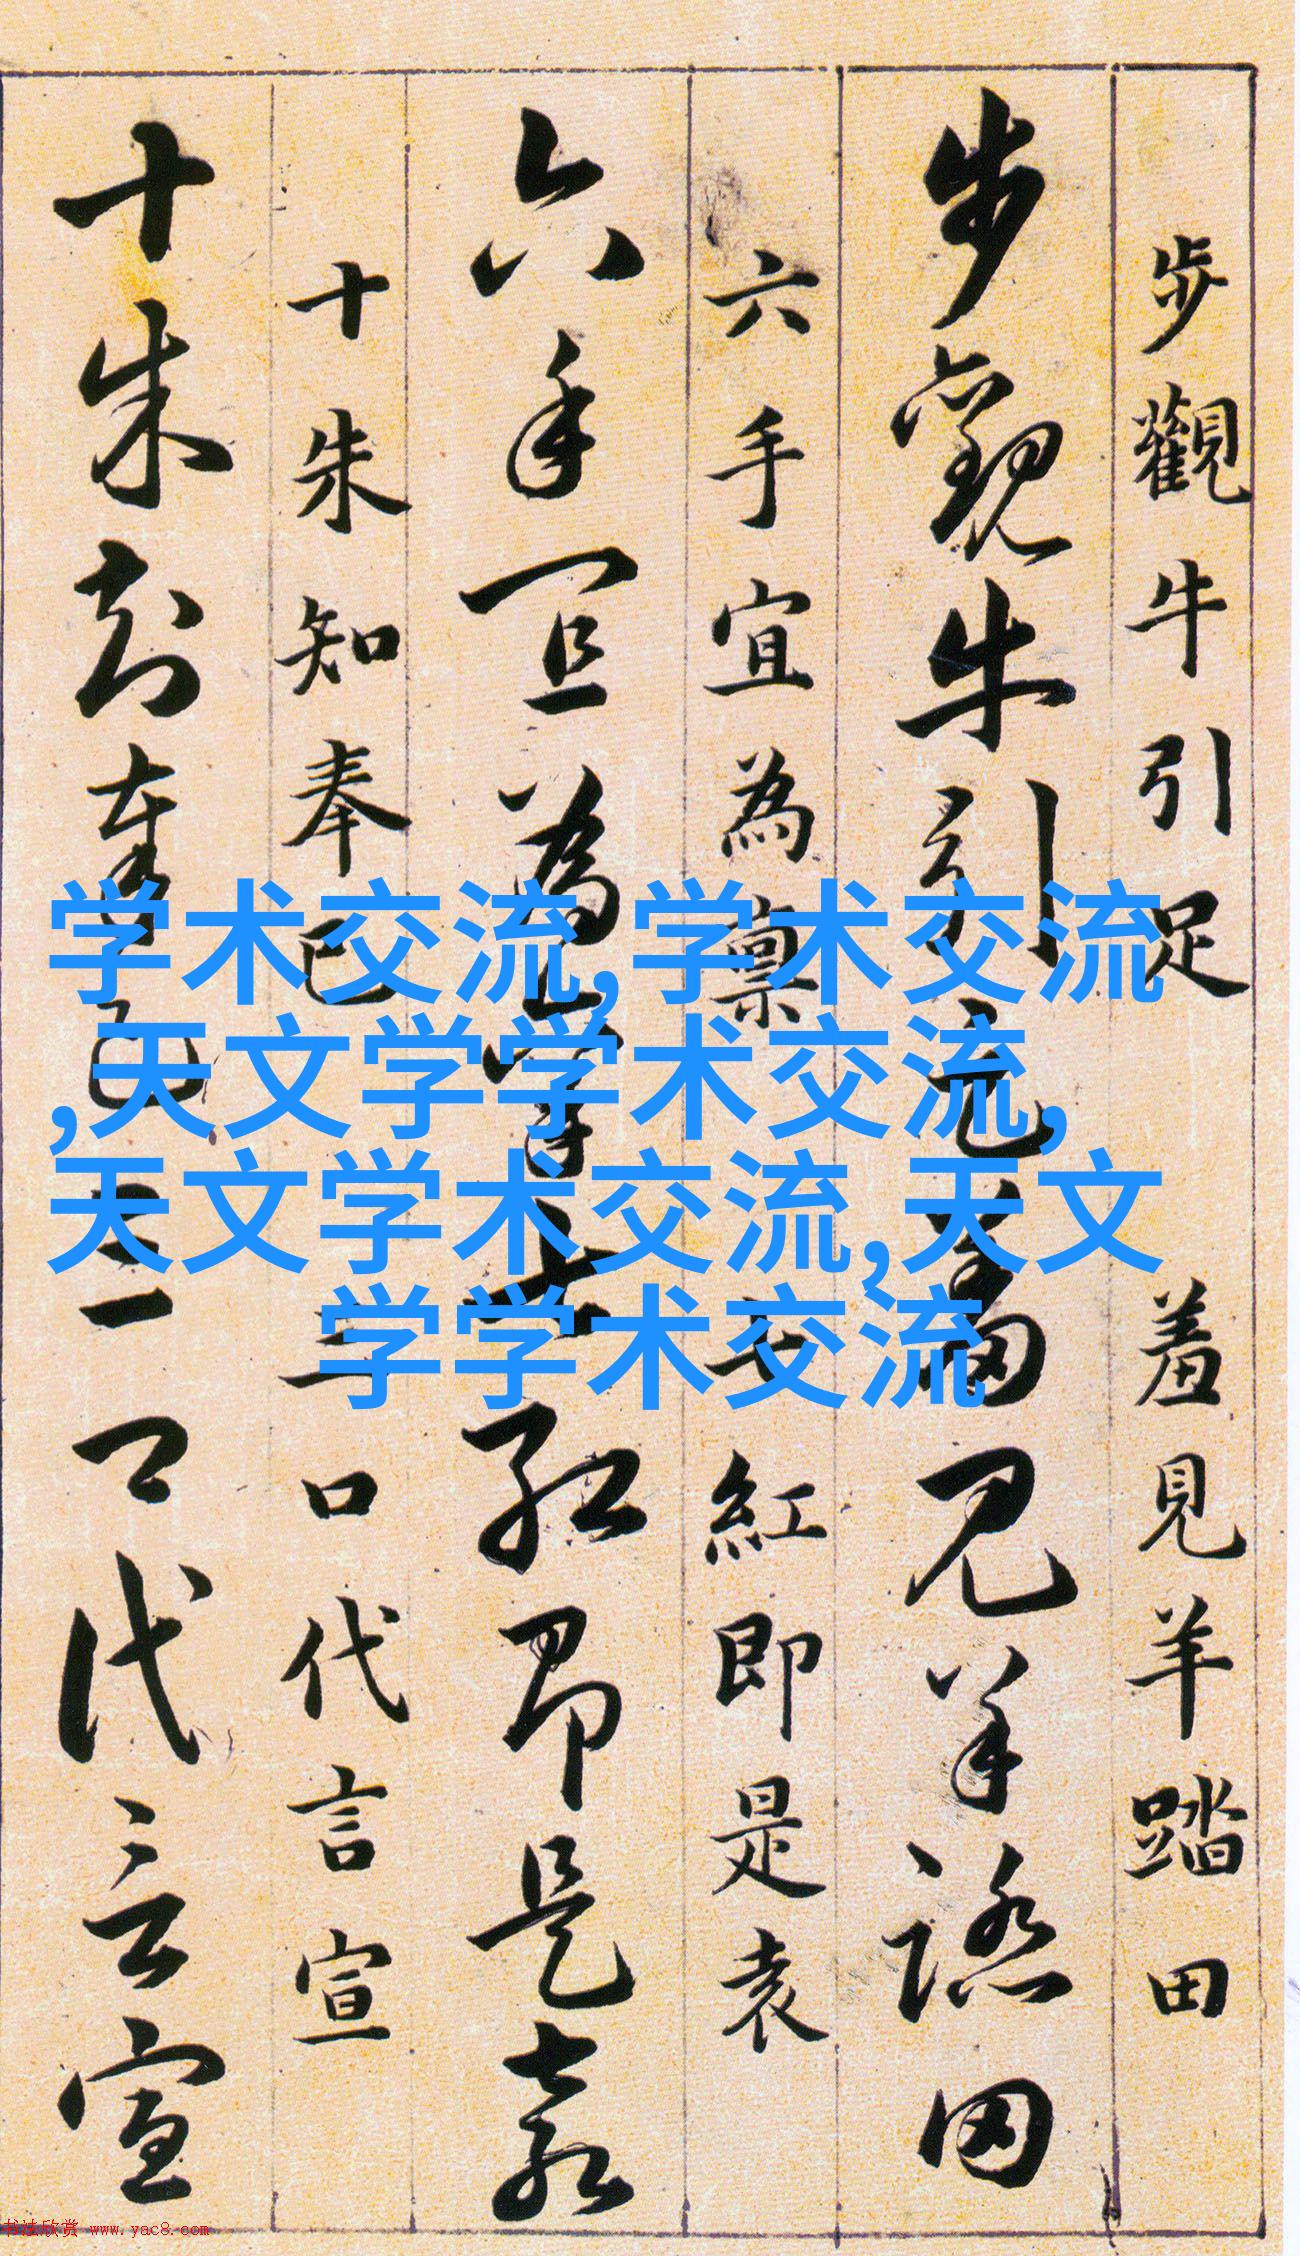 步觀牛引足 羞見羊踏田
步觀牛引足羞見羊踏田
六手宜為稟 七紅即是袁
六手宜為稟七紅即是袁
十朱知奉已 三口代言宣
十朱知奉已三口代言宣
学术交流,学术交流
,天文学学术交流,
天文学术交流,天文
学学术交流
书法欣赏 www.yac8.com